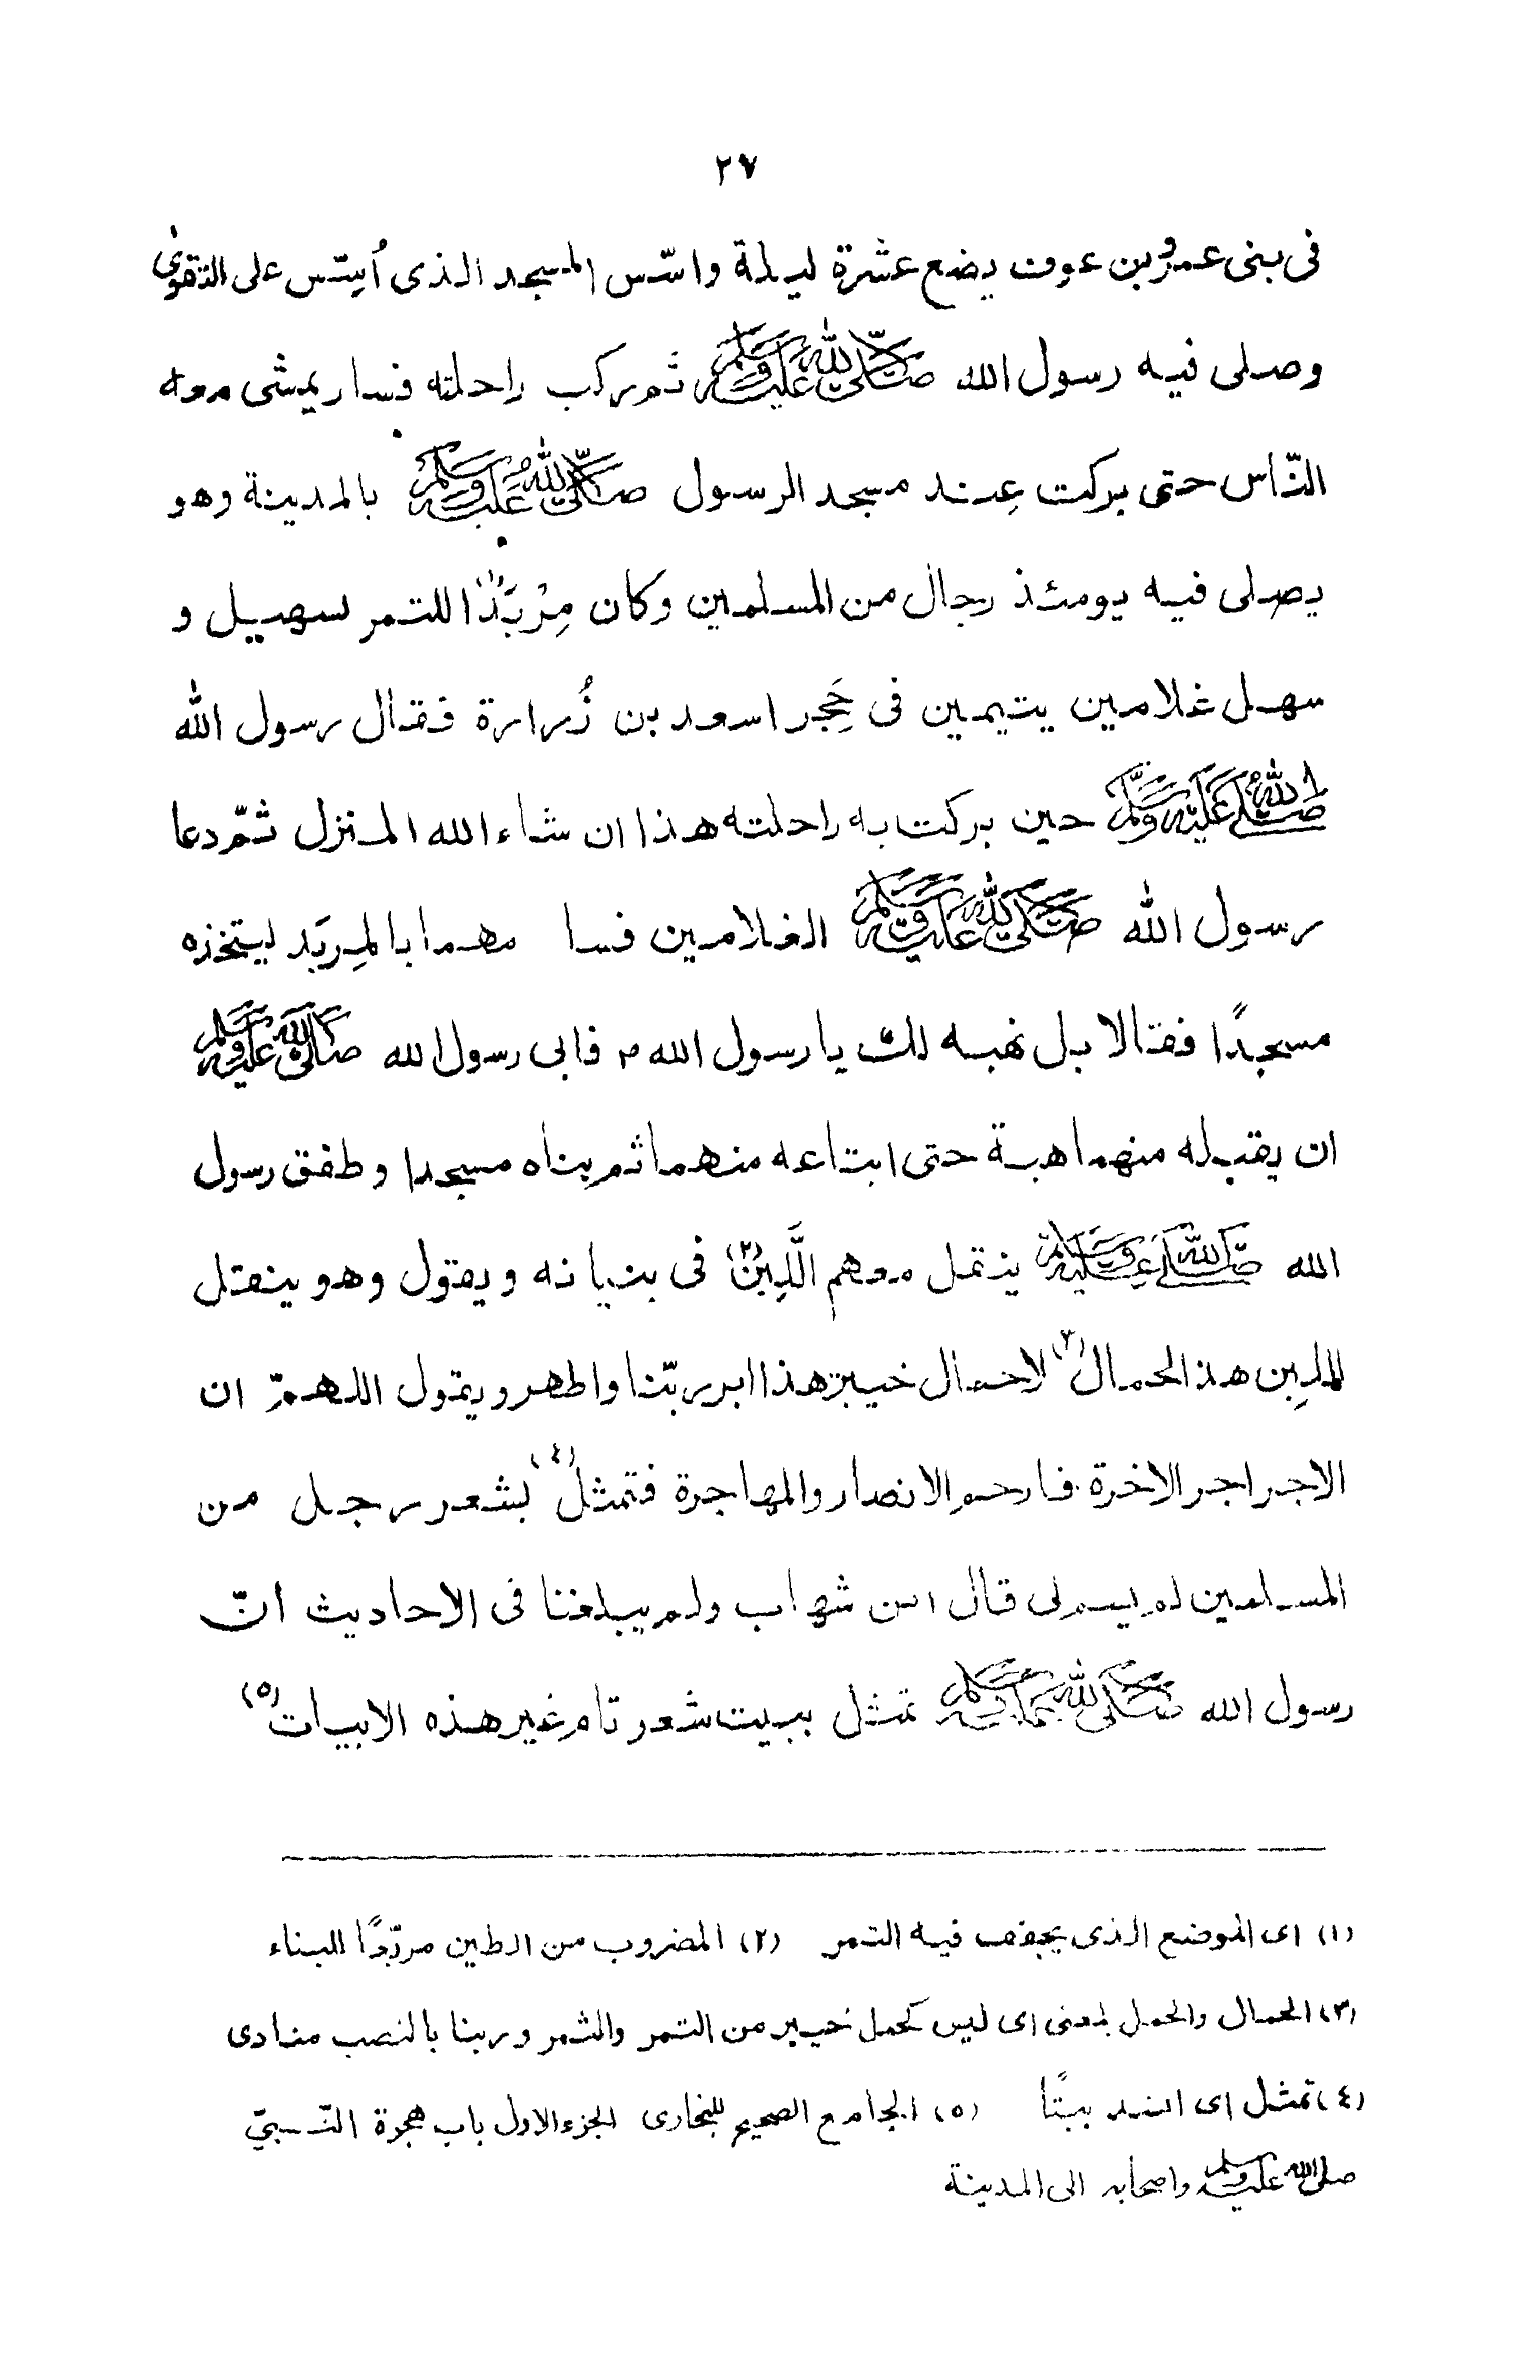 ٢٧
فى بنى عمرو بن عوف بضع عشرة ليلة واسّس المسجد الذى أسّس على التقوى
وصلى فيه رسول الله صلى الله عليه وسلم ثم ركب راحلته فسار يمشى معه
النّاس حتى بركت عِند مسجد الرسول صلى الله عليه وسلم بالمدينة وهو
يصلى فيه يومئذ رجال من المسلمين وكان مِرْبَدًا(١) للتمر لسهيل و
سهل غلامين يتيمين فى حَِجر اسعد بن زُرارة فقال رسول الله
صلى الله عليه وسلم حين بركت به راحلته هذا ان شاء الله المنزل ثمّ دعا
رسول الله صلى الله عليه وسلم الغلامين فسا مهما بالمِربَد ليتخذه
مسجدًا فقالا بل نهبه لك يا رسول الله م فابى رسول الله صلى الله عليه وسلم
ان يقبله منهما هبة حتى ابتاعه منهما ثم بناه مسجدا وطفق رسول
الله صلى الله عليه وسلم ينقل معهم الَّلبِنَ(٢) فى بنيانه ويقول وهو ينقل
اللبِن هذا الحمال(٣) لاحمال خيبر هذا ابر ربّنا واطهر ويقول اللهمّ ان
الاجر اجر الاخرة فارحم الانصار والمهاجرة فتمثل(٤) بشعر رجل من
المسلمين لم يسم لى قال ابن شهاب ولم يبلغنا فى الاحاديث انّ
رسول الله صلى الله عليه وسلم تمثل ببيت شعر تام غير هذه الابيات(٥)
(١) اى الموضع الذى يجفف فيه التمر (٢) المضروب من الطين مربّعًا للبناء
(٣) الحمال والحمل بمعنى اى ليس كحمل خيبر من التمر والثمر وربنا بالنصب منادى
(٤) تمثل اى انشد بيتًا (٥) الجامع الصحيح للبخارى الجزء الاول باب هجرة النّبىّ
صلى الله عليه وسلم واصحابه الى المدينة